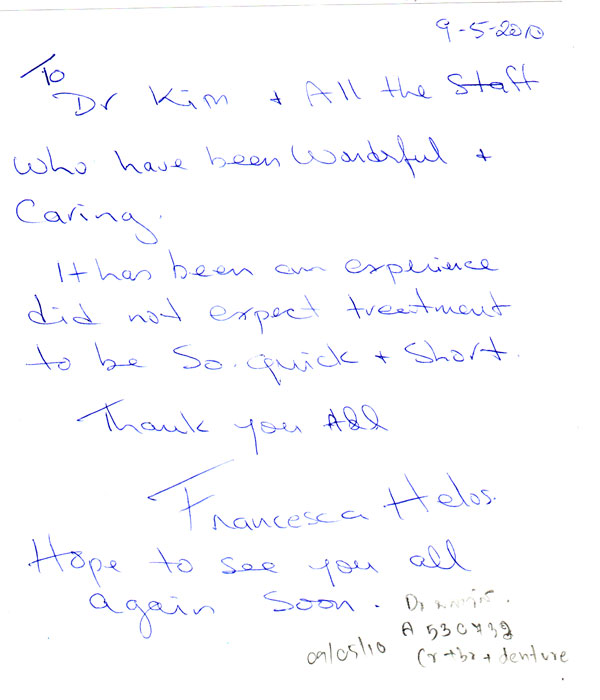 9-5-2010
To
Dr Kim + All the Staff
who have been Wonderful +
Caring.
It has been an experience
did not expect treatment
to be So. quick + Short.
Thank you All
Francesca Helos.
Hope to see you all
again Soon.
Dr
A 530732
09/05/10 (r+br + denture